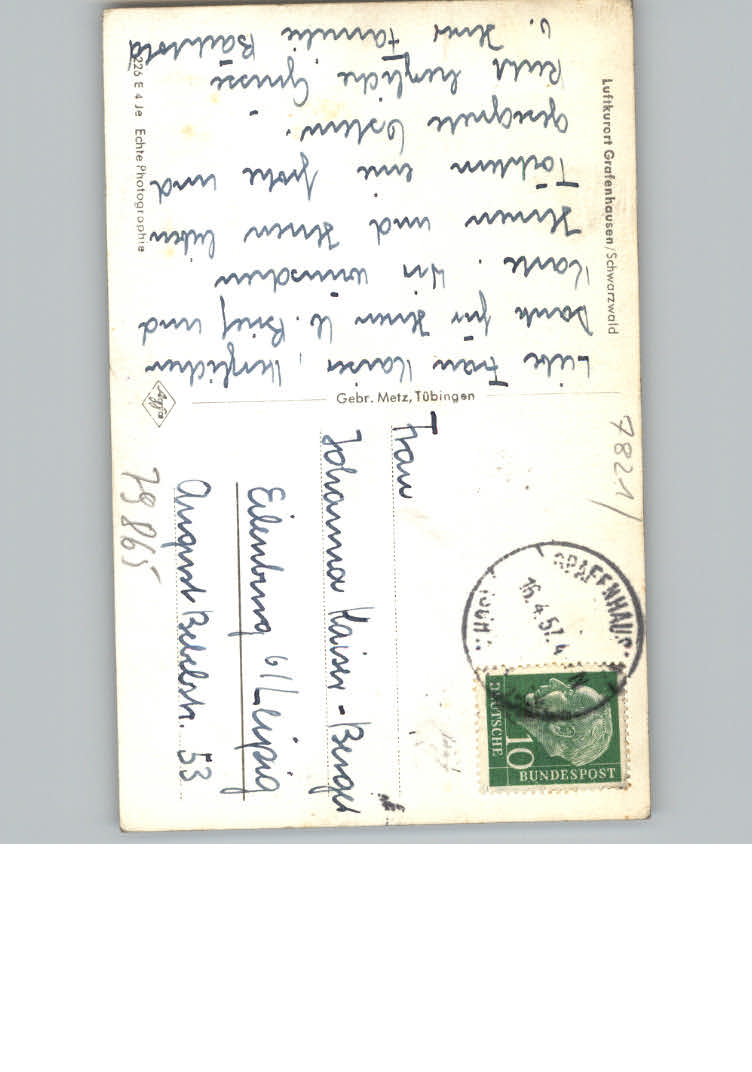 Luftkurort Grafenhausen/Schwarzwald
Liebe Frau Kaiser, herzlichen
Dank für Ihren lb. Brief und
Karte. Wir wünschen
Ihnen und Ihren lieben
Töchtern eine frohe und
gesegnete Ostern.
Recht herzliche Grüsse
v. Ihrer Familie Bächtold
226 E 4 Je Echte Photographie
Gebr. Metz, Tübingen
Agfa
7821/
GRAFENHAUS
16.4.57.
DEUTSCHE
10
BUNDESPOST
Frau
Johanna Kaiser-Berger
Eilenburg b/Leipzig
August Bebelstr. 53
79865